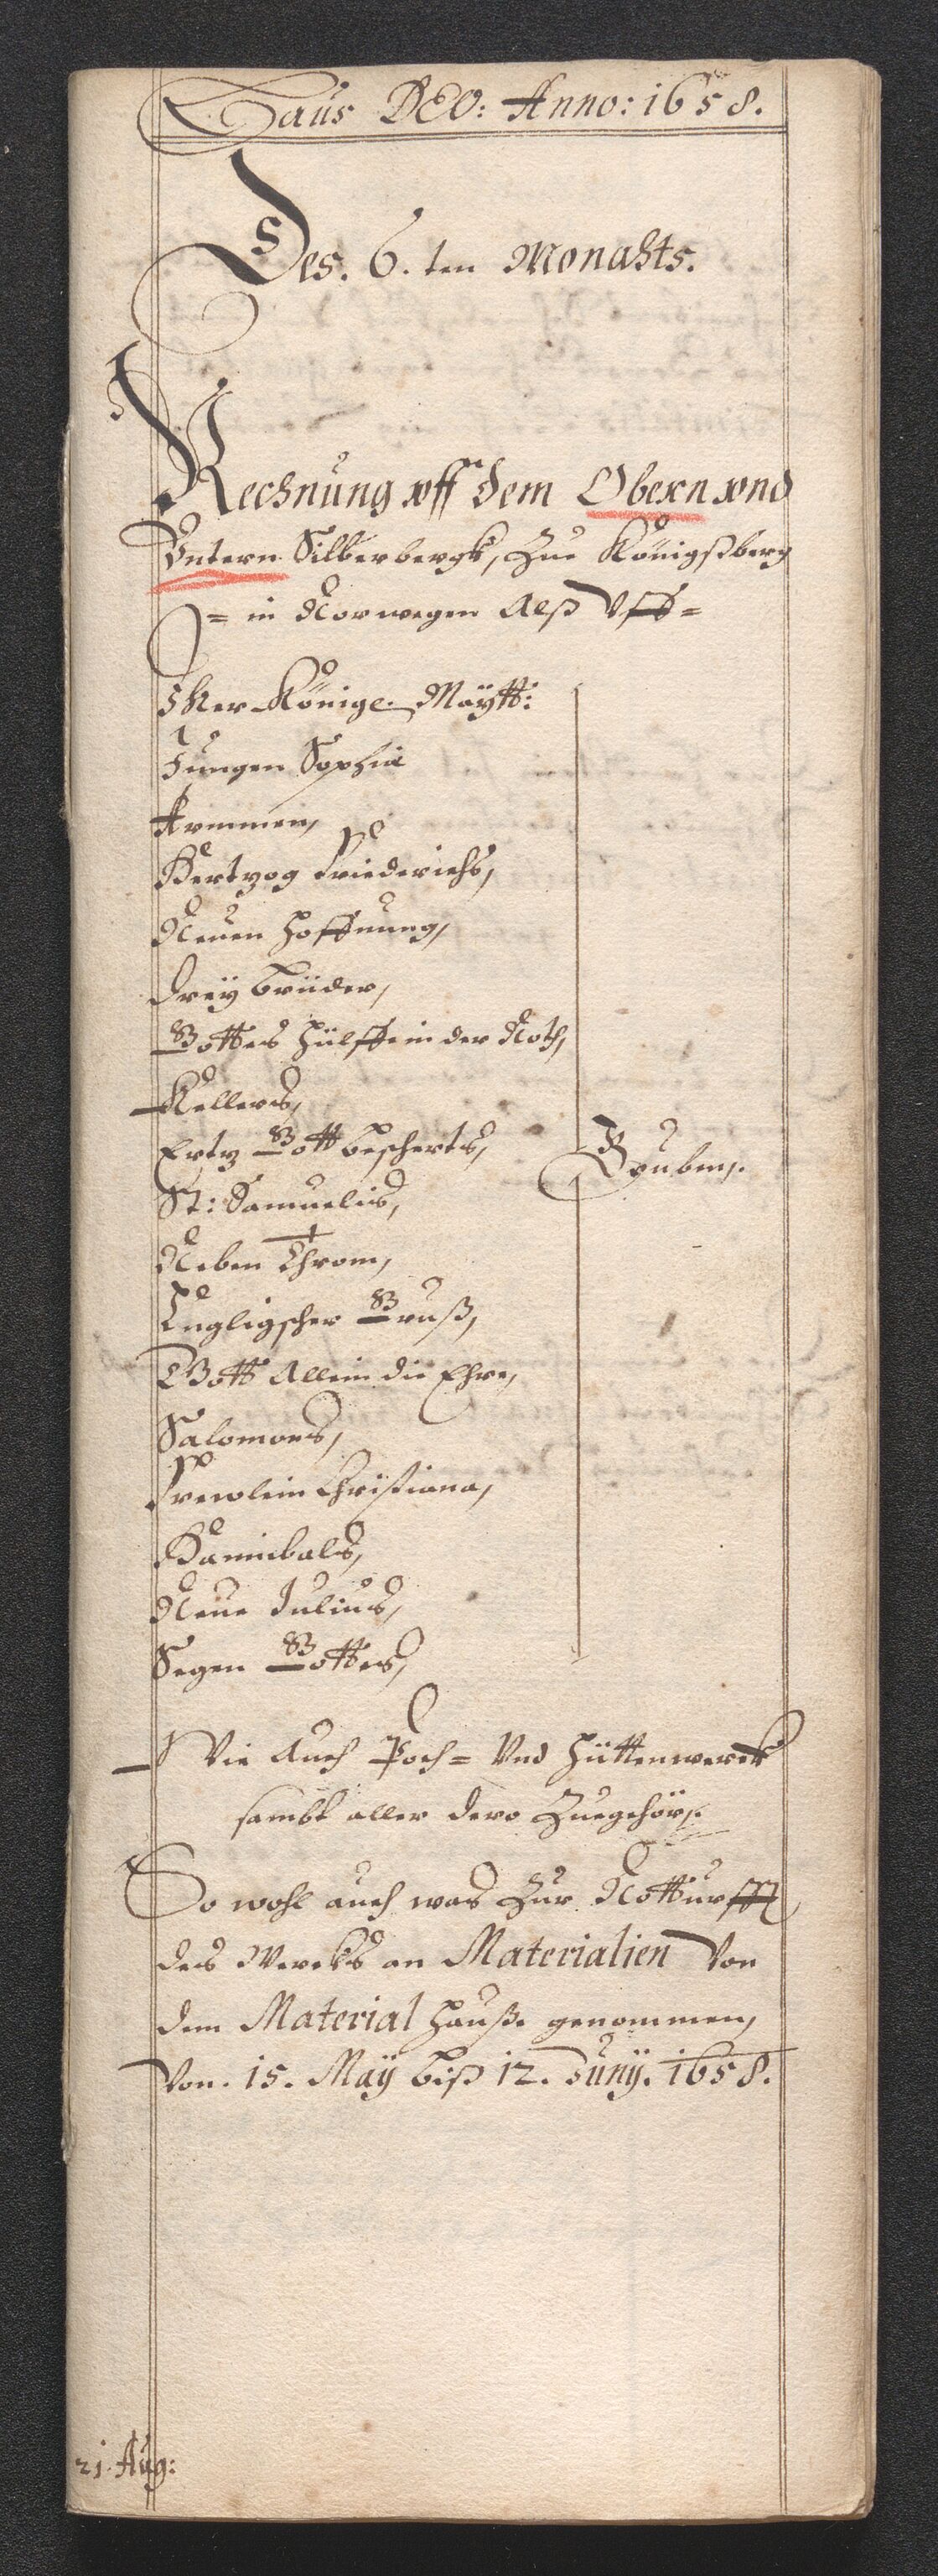 Laus DEO: Anno: 1658.
Des. 6. ten Monahts.
Rechnung vff dem Obern vnd
Vntern Silberbergk, Zue Königßberg
= in Norwegen Alß Vff =
Ihrer Königl. Maÿtt:
Jungen Sophia
Armmen,
Hertzog Friederichs,
Neuen Hoffnung,
Dreÿ Brüder,
Gottes Hülffe in der Noth,
Kellers,
Ertz Gott bescherts,
Gruben,.
St: Samuelis,
Neben Throm,
Engligscher Gruß,
Gott Allein die Ehre,
Salomons,
Frewlein Christiana,
Hannibals,
Neue Julius,
Segen Gottes,
Wie Auch Poch= Vnd Hüttenwerck
sambt aller dero Zuegehör,.
So wohl auch was Zur Notturfft
des Wercks an Materialien Von
dem Material Hauße genommen,
Von. 15. Maÿ biß 12. Junÿ. 1658.
21. Aug: